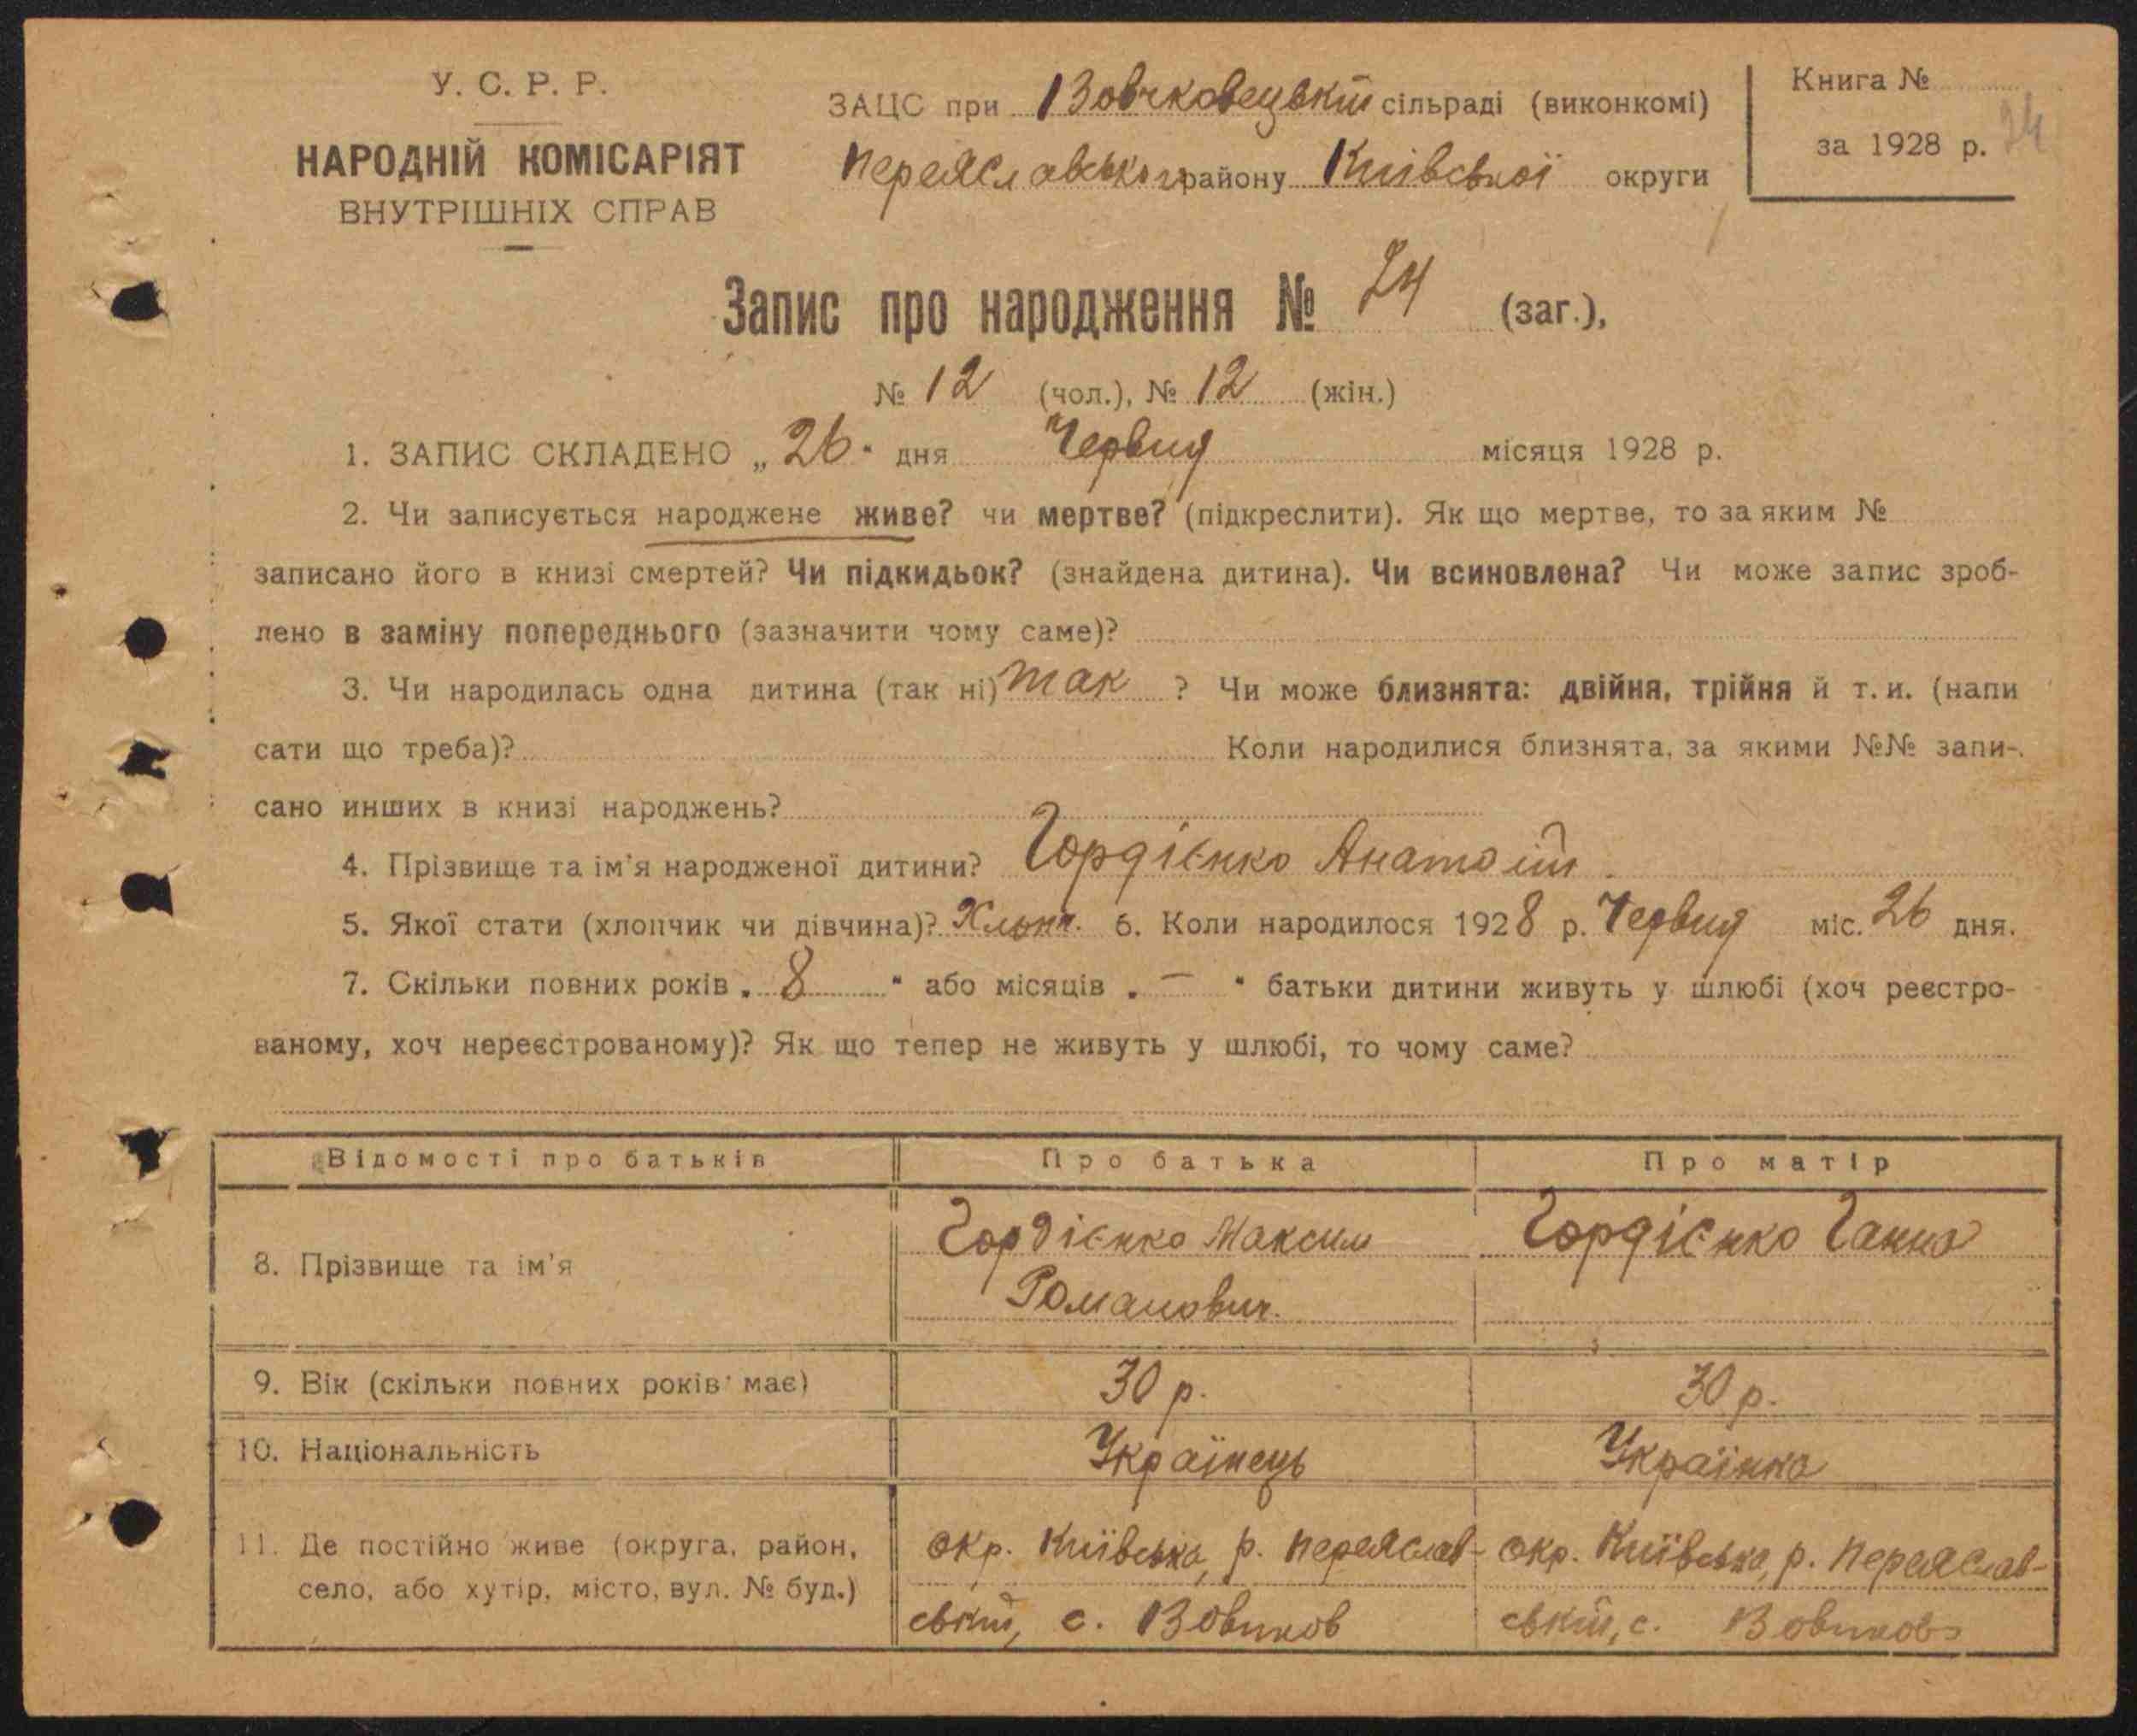 У. С. Р. Р.
НАРОДНІЙ КОМІСАРІЯТ
ВНУТРІШНІХ СПРАВ
ЗАЦС при Вовчковецькій сільраді (виконкомі)
Переяславського району Київської округи
Книга №
за 1928 р. 24
Запис про народження № 24 (заг.),
№ 12 (чол.), № 12 (жін.)
1. ЗАПИС СКЛАДЕНО „26" дня Червня місяця 1928 р.
2. Чи записується народжене живе? чи мертве? (підкреслити). Як що мертве, то за яким №
записано його в книзі смертей? Чи підкидьок? (знайдена дитина). Чи всиновлена? Чи може запис зроб-
лено в заміну попереднього (зазначити чому саме)?
3. Чи народилась одна дитина (так ні) так ? Чи може близнята: двійня, трійня й т. и. (напи
сати що треба)? Коли народилися близнята, за якими №№ запи-
сано инших в книзі народжень?
4. Прізвище та ім'я народженої дитини? Гордієнко Анатолій.
5. Якої стати (хлопчик чи дівчина)? Хлопч. 6. Коли народилося 1928 р. Червня міс. 26 дня.
7. Скільки повних років „ 8 " або місяців „ — " батьки дитини живуть у шлюбі (хоч реєстро-
ваному, хоч нереєстрованому)? Як що тепер не живуть у шлюбі, то чому саме?
Відомості про батьків Про батька Про матір
8. Прізвище та ім'я Гордієнко Максим Романович. Гордієнко Ганна
9. Вік (скільки повних років має) 30 р. 30 р.
10. Національність Українець Українка
11. Де постійно живе (округа, район, окр. Київська, р. Переяслав- окр. Київська, р. Переяслав-
село, або хутір, місто, вул. № буд.) ський, с. Вовчков ський, с. Вовчков